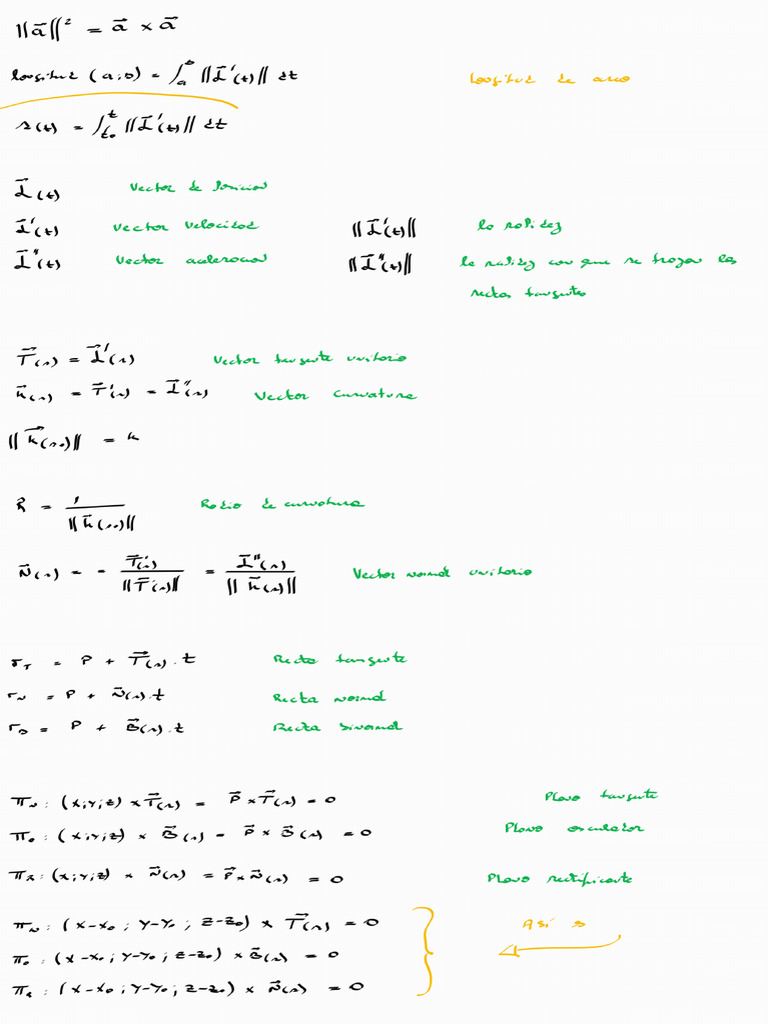 ||a⃗||² = a⃗ × a⃗
longitud (a;b) = ∫ₐᵇ ||λ⃗'(t)|| dt    Longitud de arco
s(t) = ∫ₜ₀ᵗ ||λ⃗'(t)|| dt
λ⃗(t)    Vector de posicion
λ⃗'(t)    Vector velocidad    ||λ⃗'(t)||    la rapidez
λ⃗''(t)    Vector aceleracion    ||λ⃗''(t)||    la rapidez con que se trazan las
rectas tangentes
T⃗(s) = λ⃗'(s)    Vector tangente unitario
k⃗(s) = T⃗'(s) = λ⃗''(s)    Vector curvatura
||k⃗(s₀)|| = k
R = 1 / ||k⃗(s₀)||    Radio de curvatura
N⃗(s) = - T⃗'(s) / ||T⃗'(s)|| = λ⃗''(s) / ||k⃗(s)||    Vector normal unitario
r_T = P + T⃗(s) . t    Recta tangente
r_N = P + N⃗(s) . t    Recta normal
r_B = P + B⃗(s) . t    Recta binormal
π_N : (x;y;z) × T⃗(s) = P⃗ × T⃗(s) = 0    Plano tangente
π_o : (x;y;z) × B⃗(s) = P⃗ × B⃗(s) = 0    Plano osculador
π_R : (x;y;z) × N⃗(s) = P⃗ × N⃗(s) = 0    Plano rectificante
π_N : (x-x₀ ; y-y₀ ; z-z₀) × T⃗(s) = 0    Asi s
π_o : (x-x₀ ; y-y₀ ; z-z₀) × B⃗(s) = 0
π_R : (x-x₀ ; y-y₀ ; z-z₀) × N⃗(s) = 0